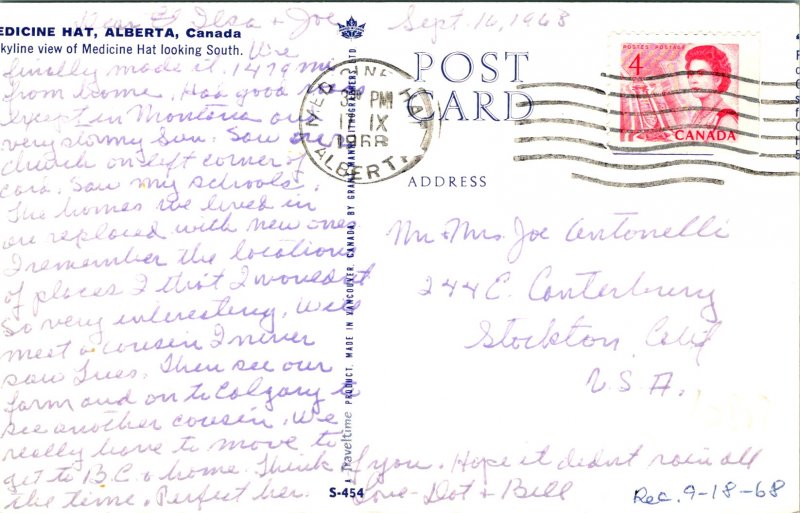 MEDICINE HAT, ALBERTA, Canada
Skyline view of Medicine Hat looking South.
Dear Ilsa + Joe Sept. 16, 1968
We
finally made it. 1479 mi
from home. Had good
except in Montana
very stormy Sun. Saw our
church on left corner of
card. Saw my schools.
The homes we lived in
are replaced with new ones
I remember the location
of places I that I wouldn't
So very interesting. Will
meet a cousin I never
saw Tues. Then see our
farm and on to Calgary to
see another cousin. We
really have to move to
get to B.C. & home. Think of you. Hope it didn't rain all
the time. Perfect her. Love - Dot + Bill
PRODUCT, MADE IN VANCOUVER, CANADA, BY GRANT-MANN LITHOGRAPHERS LTD
A Traveltime
S-454
POST
CARD
ADDRESS
MEDICINE HAT
PM
17 IX
1968
ALBERTA
POSTES POSTAGE
4
CANADA
Mr + Mrs. Joe Antonelli
244 E. Canterbury
Stockton, Calif
U.S.A.
Rec. 9-18-68